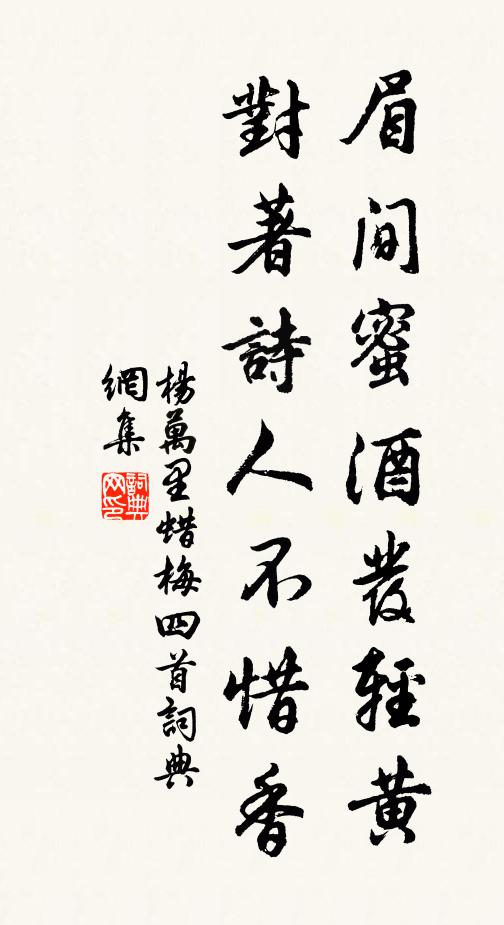 眉間蜜酒發輕黄
對著詩人不惜香
楊萬里蜡梅四首詞典
網集
詞典
网印